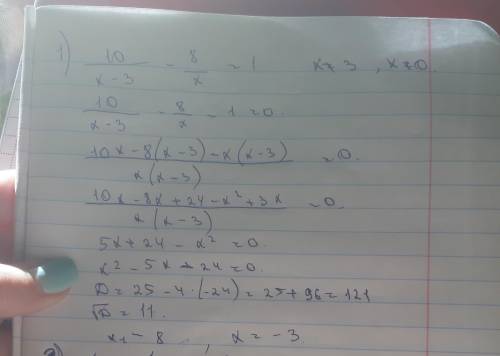 1) 10/(x-3) - 8/x = 1   x≠3, x≠0.
10/(x-3) - 8/x - 1 = 0.
(10x-8(x-3)-x(x-3))/(x(x-3)) = 0.
(10x-8x+24-x²+3x)/(x(x-3)) = 0.
5x+24-x²=0.
x²-5x-24=0.
D=25-4·(-24)=25+96=121
√D=11.
x₁=8, x=-3.